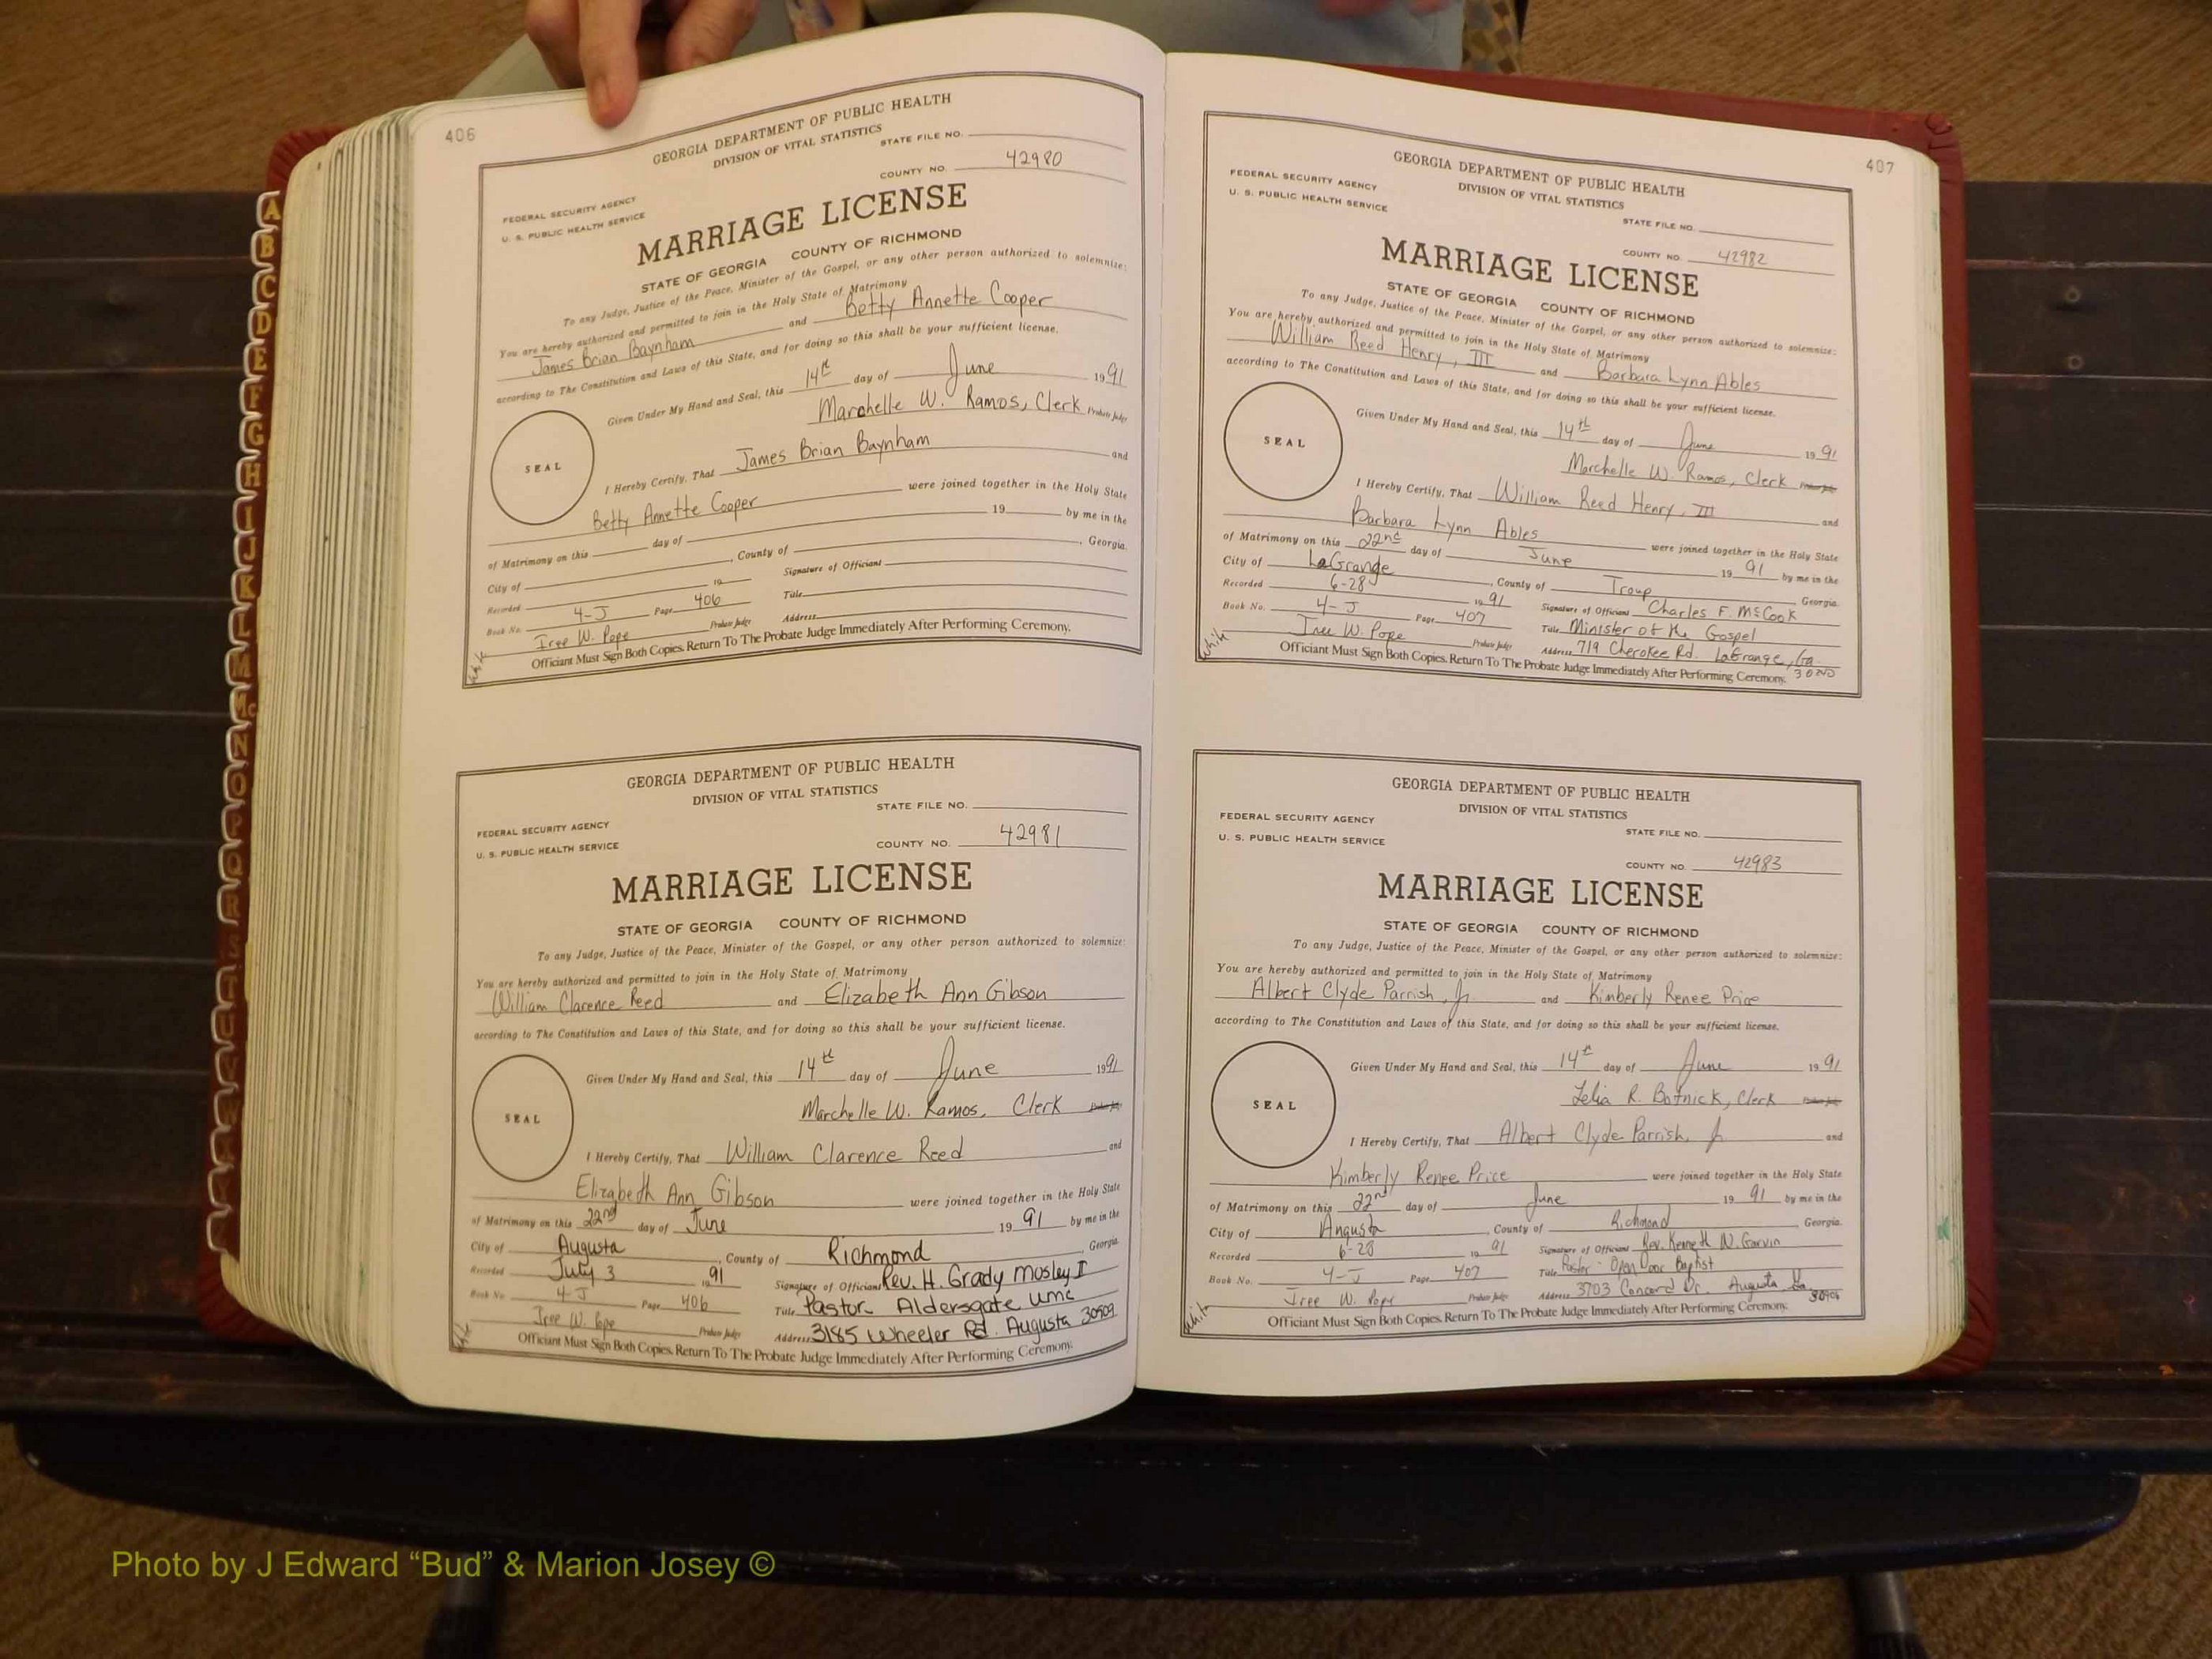 406
GEORGIA DEPARTMENT OF PUBLIC HEALTH
DIVISION OF VITAL STATISTICS
STATE FILE NO.
COUNTY NO. 42980
FEDERAL SECURITY AGENCY
U. S. PUBLIC HEALTH SERVICE
MARRIAGE LICENSE
STATE OF GEORGIA COUNTY OF RICHMOND
To any Judge, Justice of the Peace, Minister of the Gospel, or any other person authorized to solemnize:
You are hereby authorized and permitted to join in the Holy State of Matrimony
James Brian Baynham and Betty Annette Cooper
according to The Constitution and Laws of this State, and for doing so this shall be your sufficient license.
Given Under My Hand and Seal, this 14th day of June 1991
Marchelle W. Ramos, Clerk Probate Judge
SEAL
I Hereby Certify, That James Brian Baynham and
Betty Annette Cooper were joined together in the Holy State
of Matrimony on this day of 19 by me in the
City of , County of , Georgia.
Recorded 19 Signature of Officiant
Book No. 4-J Page 406 Title
Iree W. Pope Probate Judge Address
Officiant Must Sign Both Copies. Return To The Probate Judge Immediately After Performing Ceremony.
white
GEORGIA DEPARTMENT OF PUBLIC HEALTH
DIVISION OF VITAL STATISTICS
STATE FILE NO.
FEDERAL SECURITY AGENCY
U. S. PUBLIC HEALTH SERVICE
COUNTY NO. 42981
MARRIAGE LICENSE
STATE OF GEORGIA COUNTY OF RICHMOND
To any Judge, Justice of the Peace, Minister of the Gospel, or any other person authorized to solemnize:
You are hereby authorized and permitted to join in the Holy State of Matrimony
William Clarence Reed and Elizabeth Ann Gibson
according to The Constitution and Laws of this State, and for doing so this shall be your sufficient license.
Given Under My Hand and Seal, this 14th day of June 1991
Marchelle W. Ramos, Clerk Probate Judge
SEAL
I Hereby Certify, That William Clarence Reed and
Elizabeth Ann Gibson were joined together in the Holy State
of Matrimony on this 22nd day of June 1991 by me in the
City of Augusta, County of Richmond, Georgia.
Recorded July 3 1991 Signature of Officiant Rev. H. Grady Mosley II
Book No. 4-J Page 406 Title Pastor Aldersgate UMC
Iree W. Pope Probate Judge Address 3185 Wheeler Rd. Augusta 30909
Officiant Must Sign Both Copies. Return To The Probate Judge Immediately After Performing Ceremony.
407
GEORGIA DEPARTMENT OF PUBLIC HEALTH
DIVISION OF VITAL STATISTICS
FEDERAL SECURITY AGENCY
U. S. PUBLIC HEALTH SERVICE
STATE FILE NO.
COUNTY NO. 42982
MARRIAGE LICENSE
STATE OF GEORGIA COUNTY OF RICHMOND
To any Judge, Justice of the Peace, Minister of the Gospel, or any other person authorized to solemnize:
You are hereby authorized and permitted to join in the Holy State of Matrimony
William Reed Henry, III and Barbara Lynn Ables
according to The Constitution and Laws of this State, and for doing so this shall be your sufficient license.
Given Under My Hand and Seal, this 14th day of June 1991
Marchelle W. Ramos, Clerk Probate Judge
SEAL
I Hereby Certify, That William Reed Henry, III and
Barbara Lynn Ables were joined together in the Holy State
of Matrimony on this 22nd day of June 1991 by me in the
City of LaGrange, County of Troup Georgia.
Recorded 6-28 1991 Signature of Officiant Charles F. McCook
Book No. 4-J Page 407 Title Minister of the Gospel
Iree W. Pope Probate Judge Address 719 Cherokee Rd. LaGrange, Ga
Officiant Must Sign Both Copies. Return To The Probate Judge Immediately After Performing Ceremony.
white
GEORGIA DEPARTMENT OF PUBLIC HEALTH
DIVISION OF VITAL STATISTICS
FEDERAL SECURITY AGENCY
U. S. PUBLIC HEALTH SERVICE
STATE FILE NO.
COUNTY NO. 42983
MARRIAGE LICENSE
STATE OF GEORGIA COUNTY OF RICHMOND
To any Judge, Justice of the Peace, Minister of the Gospel, or any other person authorized to solemnize:
You are hereby authorized and permitted to join in the Holy State of Matrimony
Albert Clyde Parrish, Jr. and Kimberly Renee Price
according to The Constitution and Laws of this State, and for doing so this shall be your sufficient license.
Given Under My Hand and Seal, this 14th day of June 1991
Lelia R. Botnick, Clerk Probate Judge
SEAL
I Hereby Certify, That Albert Clyde Parrish, Jr. and
Kimberly Renee Price were joined together in the Holy State
of Matrimony on this 22nd day of June 1991 by me in the
City of Augusta, County of Richmond, Georgia.
Recorded 6-28 1991 Signature of Officiant Rev. Kenneth N. Garvin
Book No. 4-J Page 407 Title Pastor - Open Door Baptist
Iree W. Pope Probate Judge Address 3703 Concord Dr. Augusta Ga
Officiant Must Sign Both Copies. Return To The Probate Judge Immediately After Performing Ceremony.
white
A
B
C
D
E
F
G
H
I
J
K
L
M
Mc
N
O
P
Q
R
S
T
U
V
W
Photo by J Edward “Bud” & Marion Josey ©